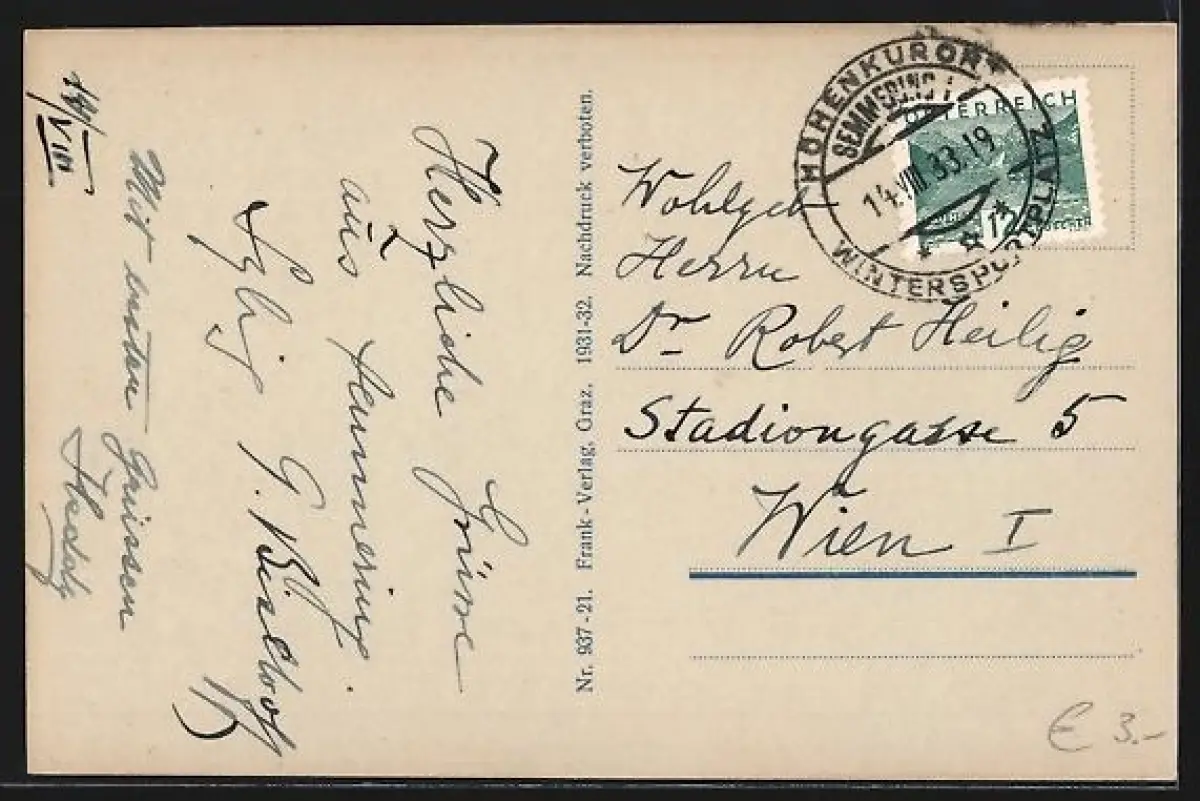 14/VIII
Herzliche Grüsse
aus Semmering.
Mit besten Grüssen
Nr. 937-21. Frank-Verlag, Graz. 1931-32. Nachdruck verboten.
HÖHENKURORT
SEMMERING 1
14.VIII.33.19
WINTERSPORTPLATZ
ÖSTERREICH
12
Wohlgeb
Herrn
Dr Robert Heilig
Stadiongasse 5
Wien I
€ 3.-